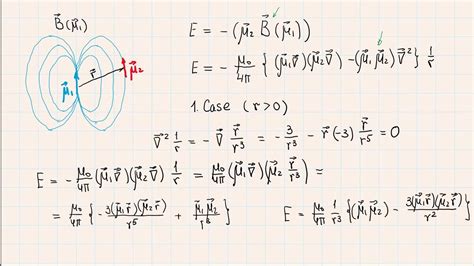 B⃗(μ⃗₁)
r⃗
μ⃗₁
μ⃗₂
E = -(μ⃗₂ B⃗(μ⃗₁))
E = - μ₀/4π {(μ⃗₁∇⃗)(μ⃗₂∇⃗) - (μ⃗₁μ⃗₂)∇⃗²} 1/r
1. Case (r>0)
∇⃗² 1/r = -∇⃗ r⃗/r³ = - 3/r³ - r⃗(-3) r⃗/r⁵ = 0
E = - μ₀/4π (μ⃗₁∇⃗)(μ⃗₂∇⃗) 1/r = μ₀/4π (μ⃗₁∇⃗)(μ⃗₂ r⃗/r³) =
= μ₀/4π {- 3(μ⃗₁r⃗)(μ⃗₂r⃗)/r⁵ + μ⃗₁μ⃗₂/r³}
E = μ₀/4π 1/r³ {(μ⃗₁μ⃗₂) - 3(μ⃗₁r⃗)(μ⃗₂r⃗)/r²}